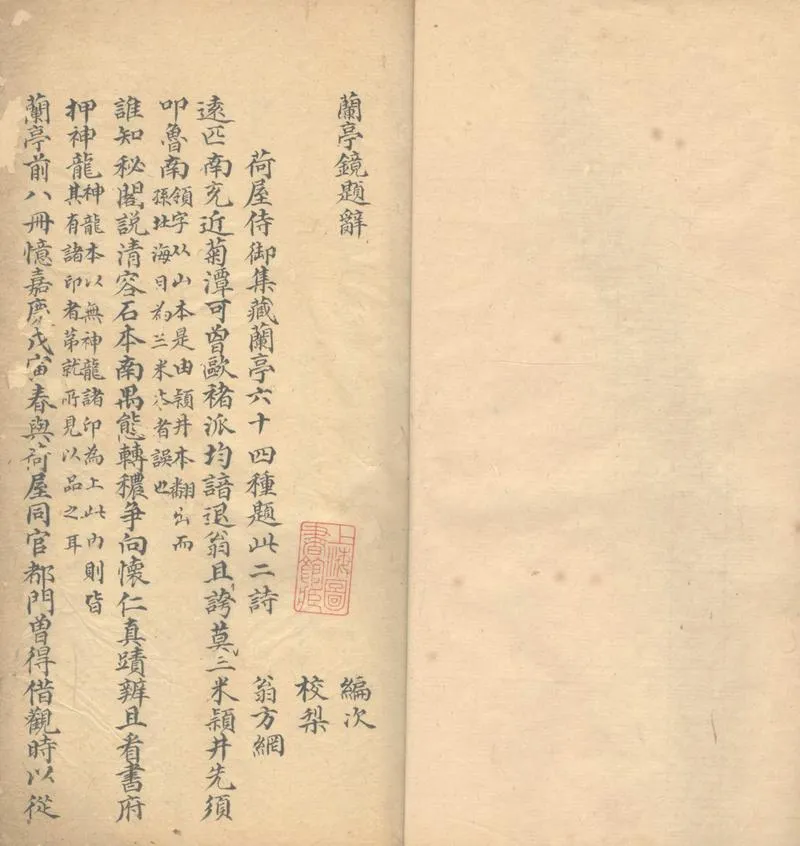 蘭亭鏡題辭 編次
校梨
上海圖書館藏
荷屋侍御集藏蘭亭六十四種題此二詩 翁方綱
遠匹南充近菊潭可曾歐褚派均諳退翁且誇莫三米潁井先須
叩魯南
領字从山本是由潁井本翻出而
孫北海目為三米者誤也
誰知秘閣説清容石本南禺態轉穠爭向懷仁真蹟辨且看書府
押神龍
神龍本以無神龍諸印為上此內則皆
其有諸印者苐就所見以品之耳
蘭亭前八冊憶嘉慶戊寅春與荷屋同官都門曾得借觀時以從